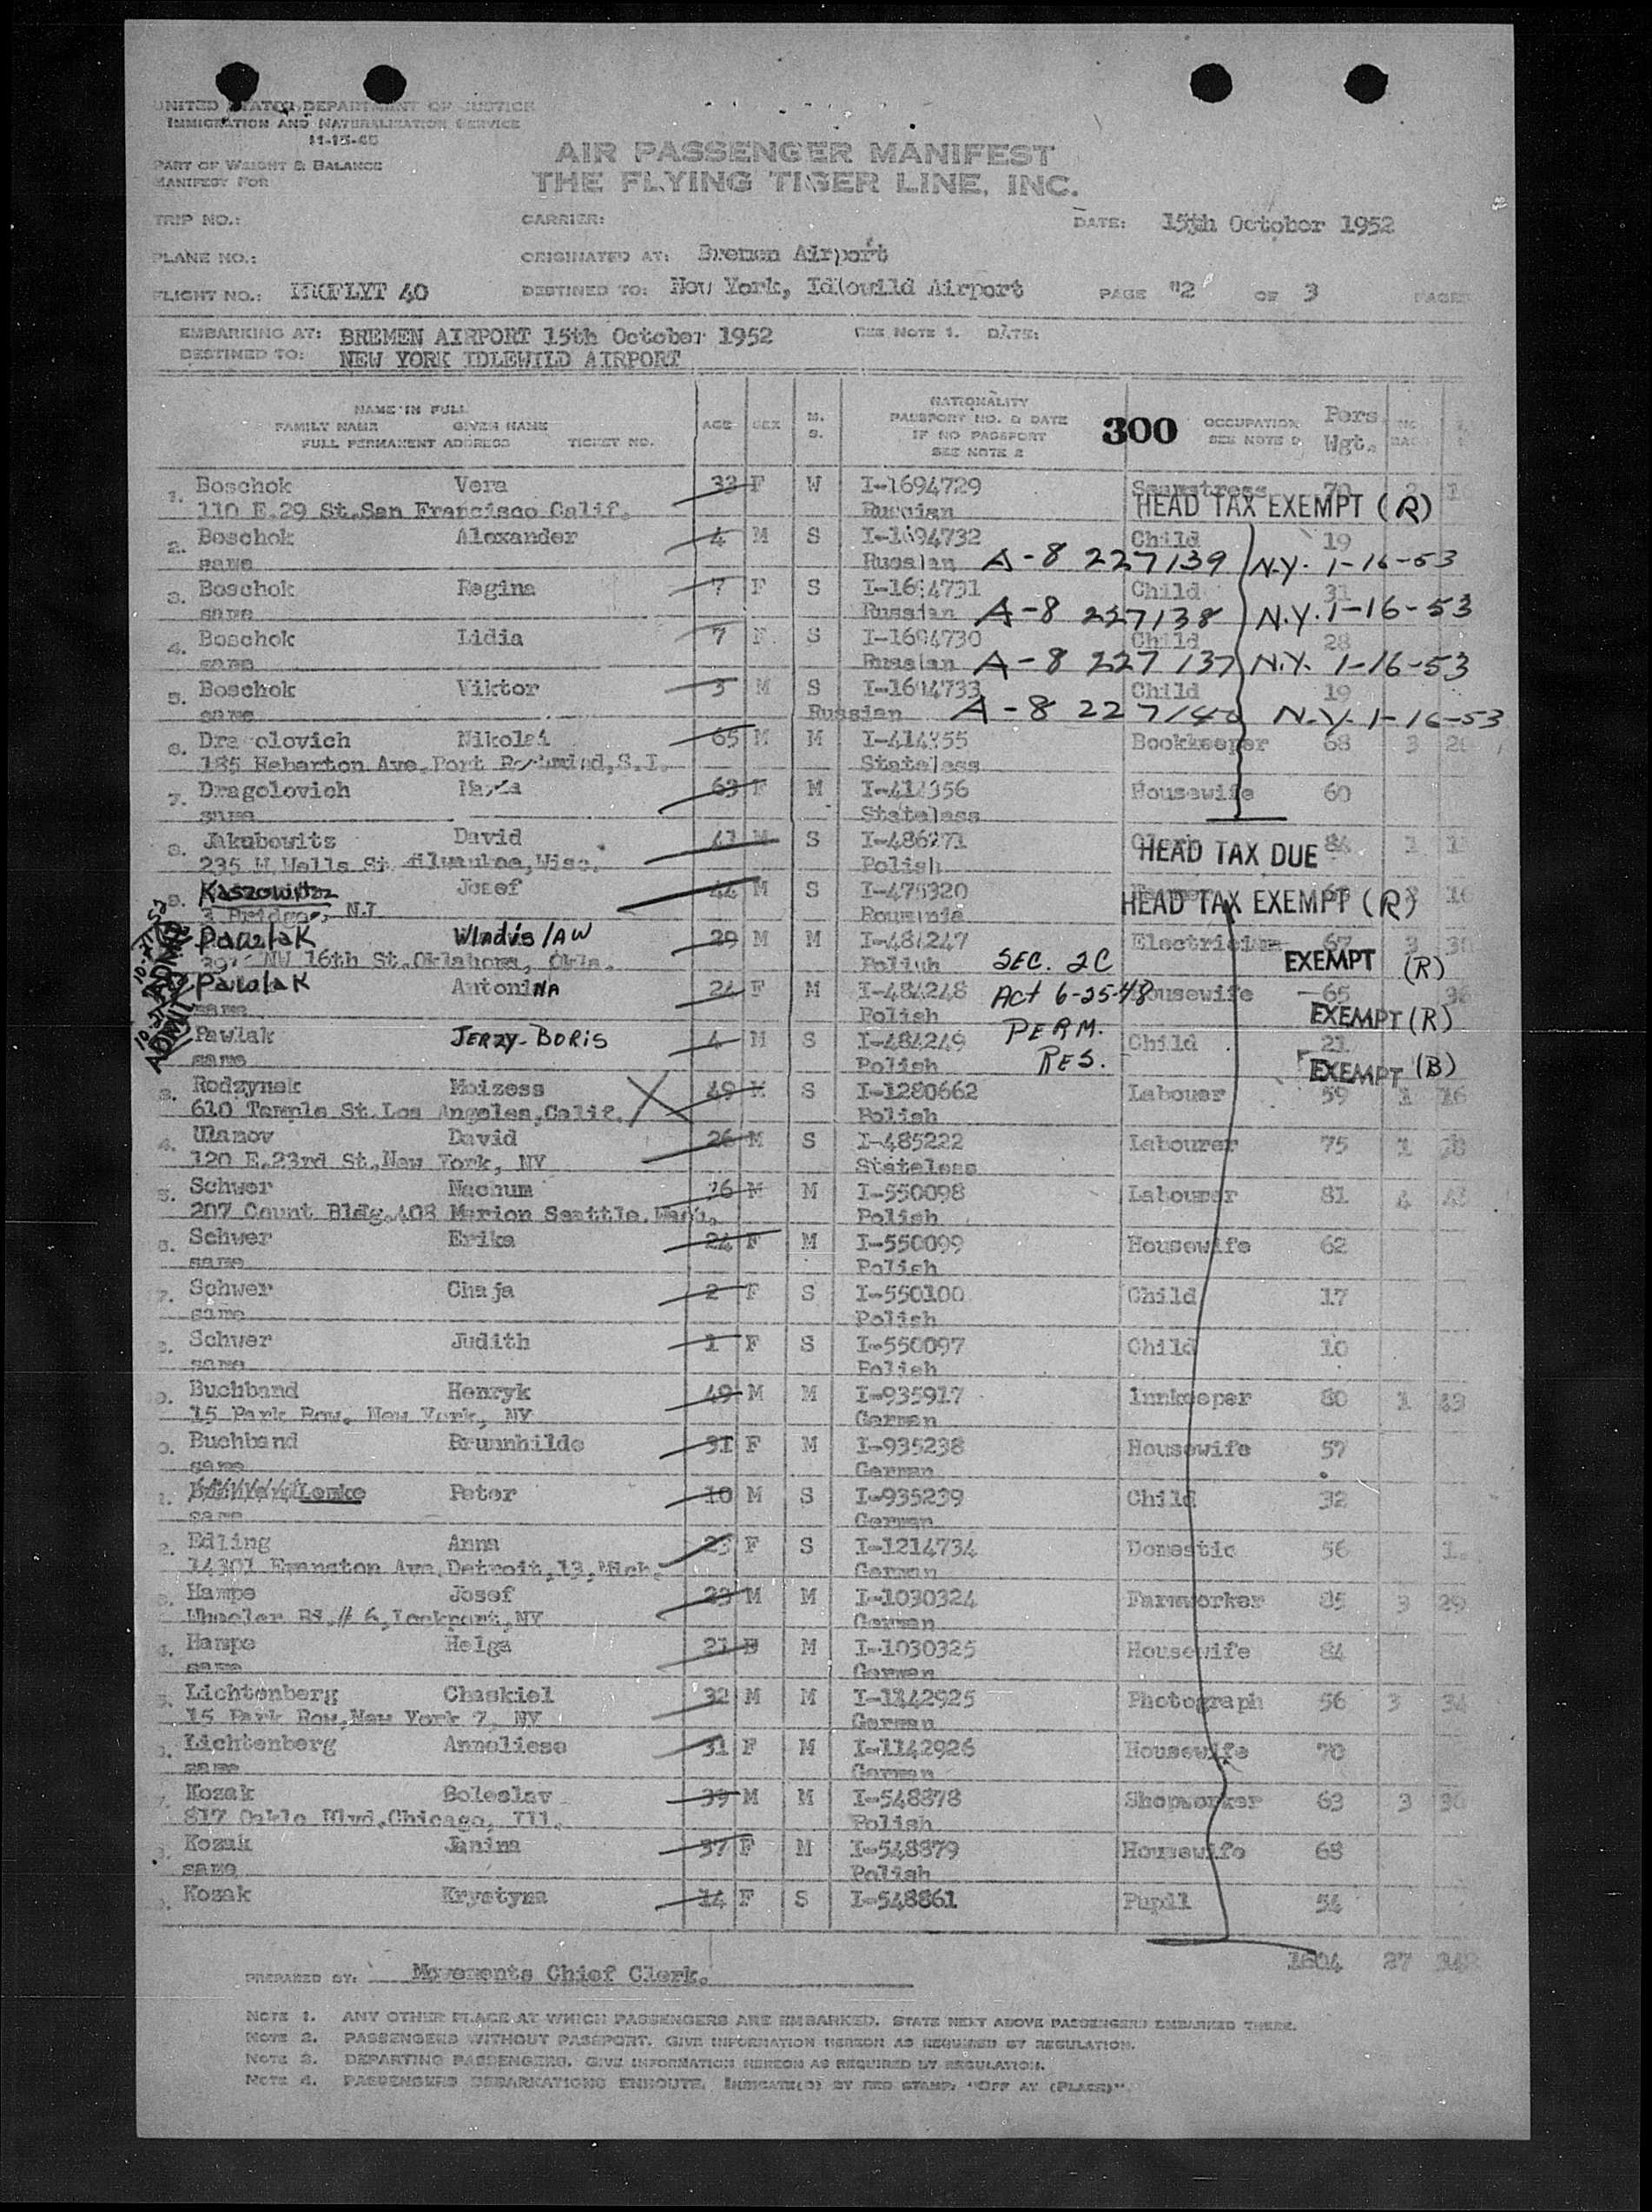 UNITED STATES DEPARTMENT OF JUSTICE
IMMIGRATION AND NATURALIZATION SERVICE
11-15-45
PART OF WEIGHT & BALANCE
MANIFEST FOR
AIR PASSENGER MANIFEST
THE FLYING TIGER LINE, INC.
TRIP NO.: CARRIER: DATE: 15th October 1952
PLANE NO.: ORIGINATED AT: Bremen Airport
FLIGHT NO.: IROFLYT 40 DESTINED TO: New York, Idlewild Airport PAGE "2" OF 3 PAGES
EMBARKING AT: BREMEN AIRPORT 15th October 1952 SEE NOTE 1. DATE:
DESTINED TO: NEW YORK IDLEWILD AIRPORT
NAME IN FULL
FAMILY NAME GIVEN NAME
FULL PERMANENT ADDRESS TICKET NO. AGE SEX M. S. NATIONALITY PASSPORT NO. & DATE IF NO PASSPORT SEE NOTE 2 300 OCCUPATION SEE NOTE 3 Pers. Wgt.
1. Boschok Vera 33 F W I-1694729 Seamstress 70 2
110 E.29 St.San Francisco Calif. Russian HEAD TAX EXEMPT (R)
2. Boschok Alexander 4 M S I-1694732 Child 19
same Russian A-8 227139 N.Y. 1-16-53
3. Boschok Regina 7 F S I-1694731 Child 31
same Russian A-8 227138 N.Y. 1-16-53
4. Boschok Lidia 7 F S I-1694730 Child 28
same Russian A-8 227137 N.Y. 1-16-53
5. Boschok Viktor 3 M S I-1694733 Child 19
same Russian A-8 227140 N.Y. 1-16-53
6. Dragolovich Nikolai 65 M M I-414355 Bookkeeper 68 3
185 Hebarton Ave. Port Richmind, S.I. Stateless
7. Dragolovich Maria 63 F M I-414356 Housewife 60
same Stateless
8. Jakubowitz David 41 M S I-486271 84 1
235 W.Wells St. Milwaukee, Wisc. Polish HEAD TAX DUE
9. Kaszowitz Josef 44 M S I-475320 Farmer 2 16
3 Bridges, NJ Roumania HEAD TAX EXEMPT (R)
Pawlak Wladislaw 29 M M I-484247 Electrician 67 3
NW 16th St.Oklahoma, Okla. Polish SEC. 2C EXEMPT (R)
10-27-52 ADMITTED
Pawlak Antonina 24 F M I-484248 Act 6-25-48 Housewife 65
same Polish PERM. EXEMPT (R)
Pawlak JERZY-BORIS 4 M S I-484249 Child 21
same Polish RES. EXEMPT (B)
3. Rodzynek Moizess 49 M S I-1280662 Labouer 59 1 16
610 Temple St.Los Angeles,Calif. Polish
4. Ulanov David 26 M S I-485222 Labourer 75 1
120 E.23rd St.,New York, NY Stateless
5. Schwer Nachum 26 M M I-550098 Labourer 81 4
207 Count Bldg.408 Marion Seattle.Wash. Polish
6. Schwer Erika 24 F M I-550099 Housewife 62
same Polish
7. Schwer Chaja 2 F S I-550100 Child 17
same Polish
8. Schwer Judith 1 F S I-550097 Child 10
same Polish
9. Buchband Henryk 49 M M I-935917 Innkeeper 80 1
15 Park Row, New York, NY German
0. Buchband Brunnhilde 31 F M I-935238 Housewife 57
same German
1. Lemke Peter 10 M S I-935239 Child 32
same German
2. Edling Anna 23 F S I-1214734 Domestic 56
14301 Evanston Ave.Detroit,13,Mich. German
3. Hampe Josef 23 M M I-1030324 Farmworker 85 3 29
Wheeler Rd.# 6,Lockport,NY German
4. Hampe Helga 21 F M I-1030325 Housewife 84
same German
5. Lichtenberg Chaskiel 32 M M I-1142925 Photograph 56 3
15 Park Row,New York 7, NY German
6. Lichtenberg Anneliese 31 F M I-1142926 Housewife 70
same German
7. Kozak Boleslav 39 M M I-548878 Shopworker 63 3
817 Oakle Blvd.Chicago, Ill. Polish
8. Kozak Janina 37 F M I-548879 Housewife 68
same Polish
9. Kozak Krystyna 14 F S I-548861 Pupil 54
1604 27
PREPARED BY: Movements Chief Clerk.
NOTE 1. ANY OTHER PLACE AT WHICH PASSENGERS ARE EMBARKED. STATE NEXT ABOVE PASSENGERS EMBARKED THERE.
NOTE 2. PASSENGERS WITHOUT PASSPORT. GIVE INFORMATION HEREON AS REQUIRED BY REGULATION.
NOTE 3. DEPARTING PASSENGERS. GIVE INFORMATION HEREON AS REQUIRED BY REGULATION.
NOTE 4. PASSENGERS DEBARKATIONS ENROUTE, INDICATE(D) BY RED STAMP: "OFF AT (PLACE)".